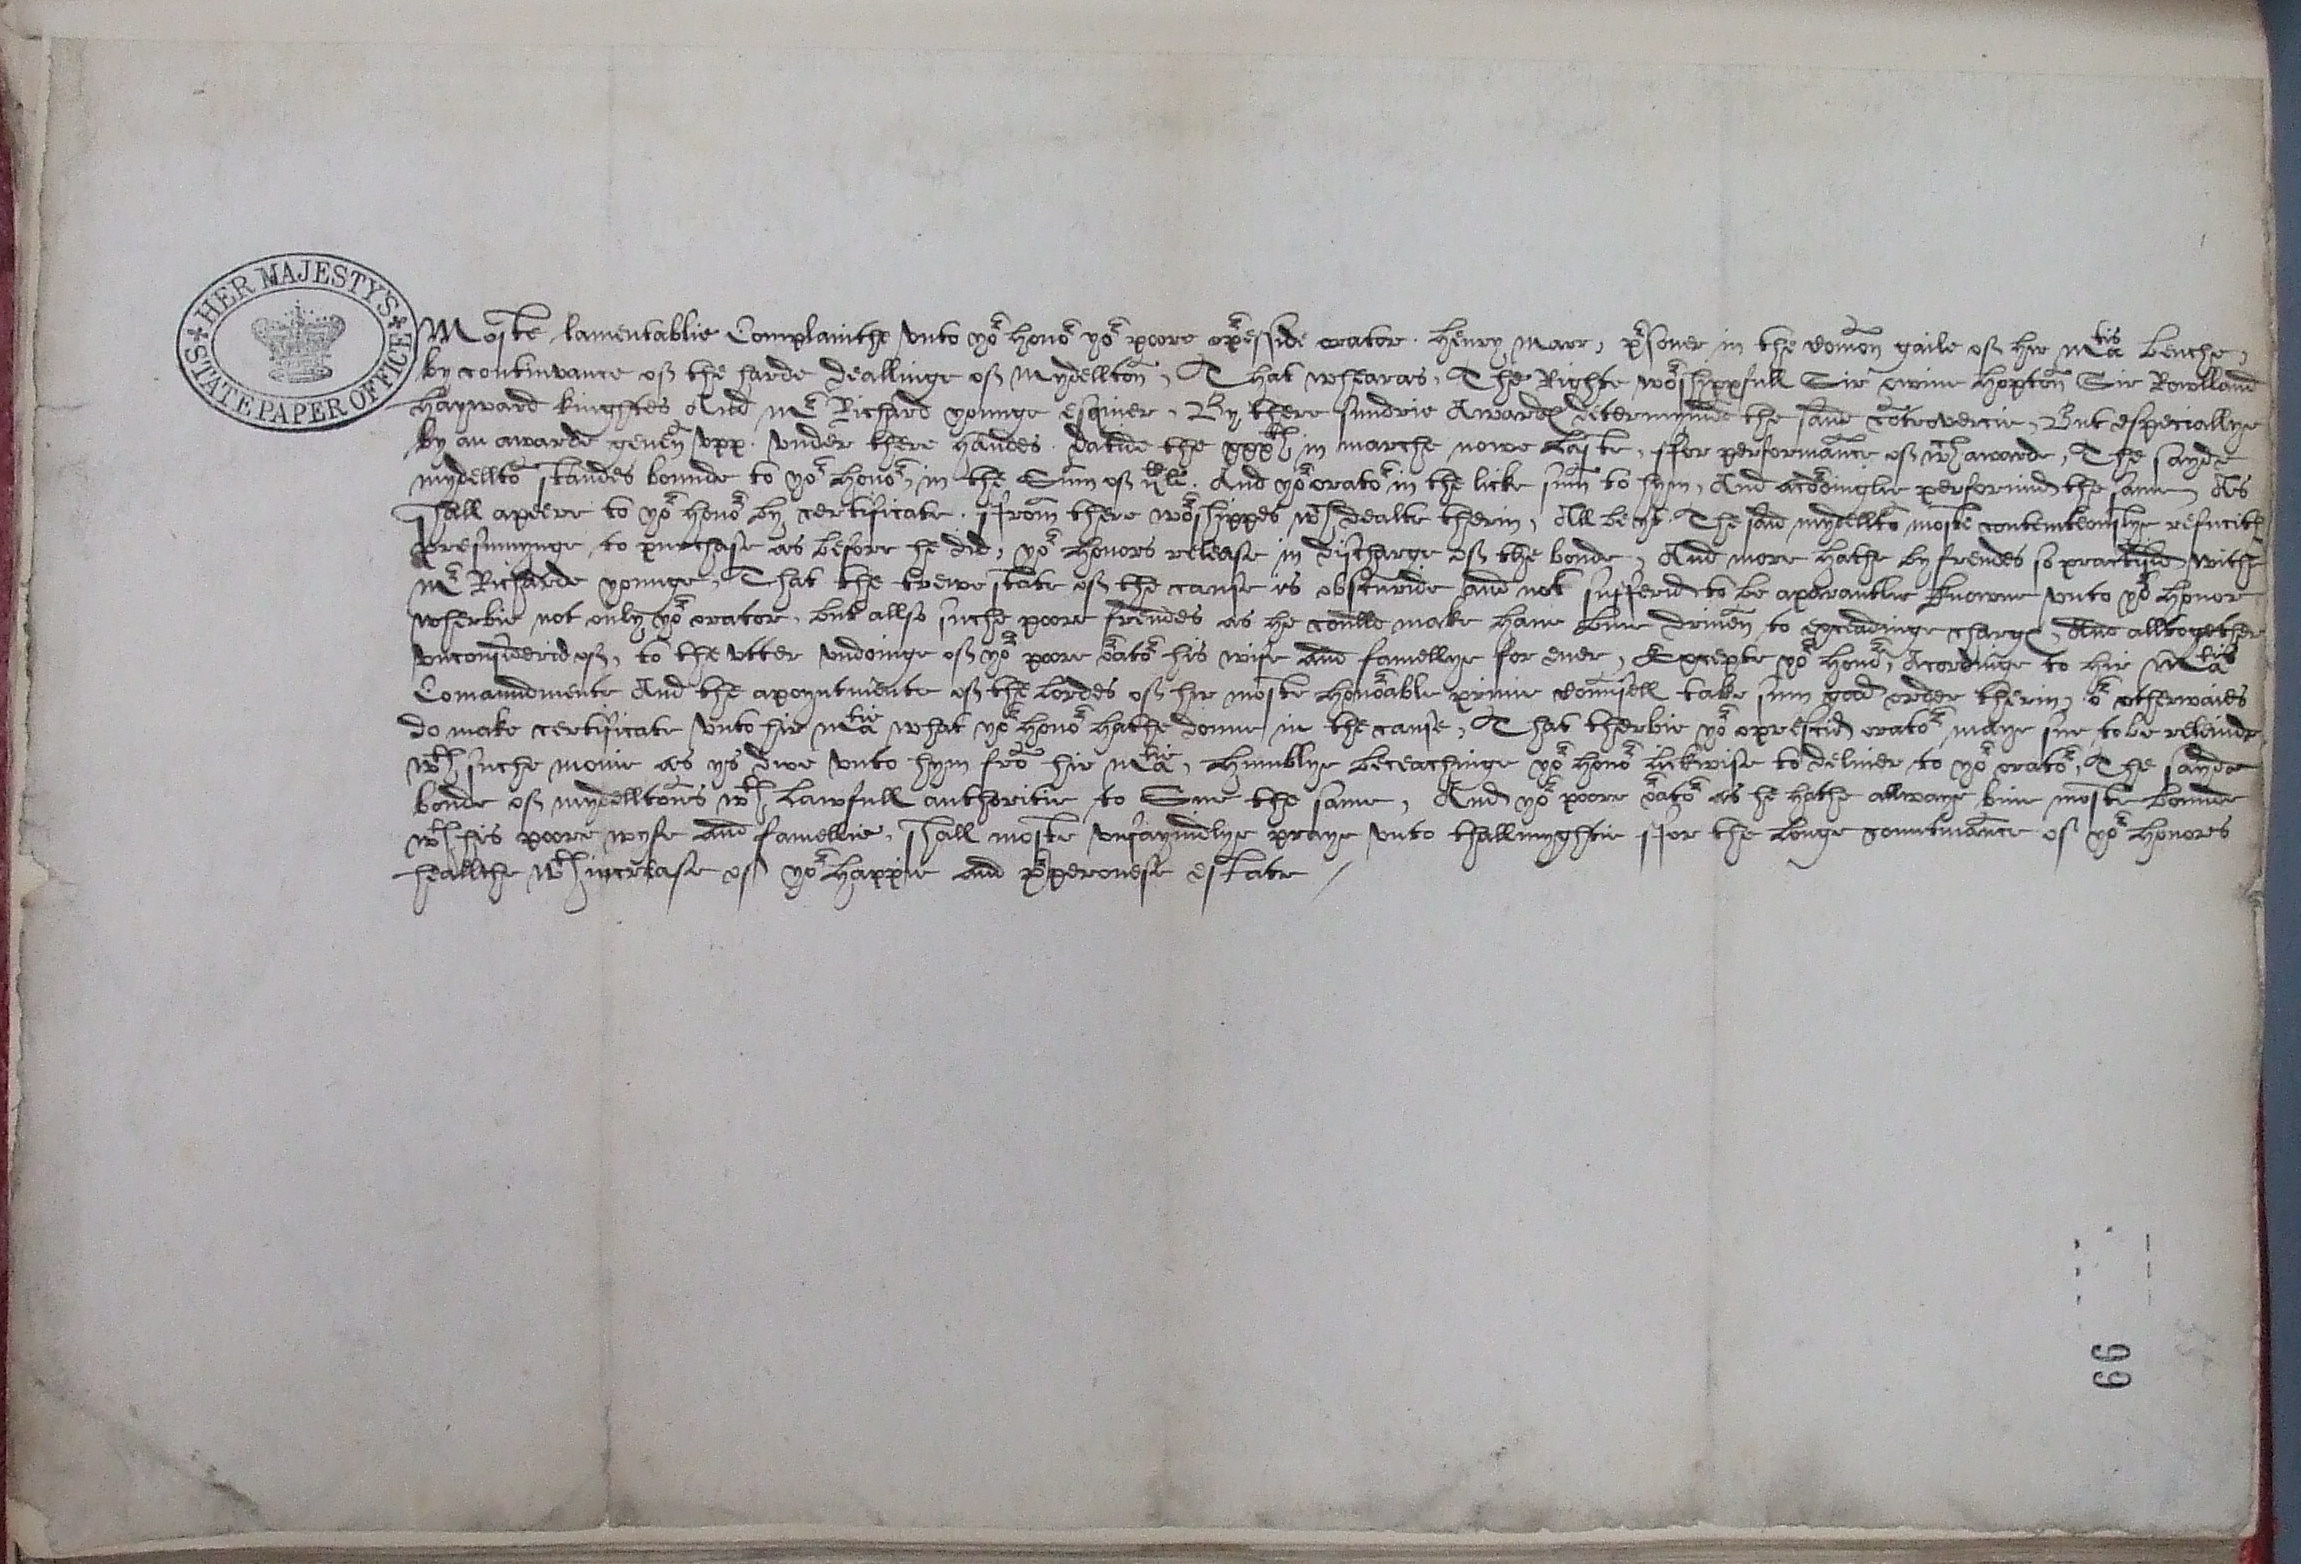 HER MAJESTY'S STATE PAPER OFFICE
Moste lamentablie Complainithe vnto yor honor yor poore oppresside orator. Henry Marr, prisoner in the comon gaile off hir Matis benche,
by contineance off the harde deallinge off Mydellton, That whearas, The Righte worshyppfull Sir owine hopton Sir Rowlland
Hayward knightes And Mr Richard younge esquier, By there sundrie Awardes determynide the saide cotrovercie, But especiallye
by an awarde geven vpp. vnder there handes. datide the xxxth in marche nowe laste, ffor performance off wch awarde, The sayde
mydellto standes bounde to yor honor, in the Sum off li. And yor orator in the licke sum to hym, And acordinglie performid the same, As
shall apeere to yor honor by certificate. ffrom there worshippes wch dealte therin, All be yt. The said mydellto moste contemteouslye refucith
presumynge to purchase as before he did, yor honors release in discharge off the bonde, And more hathe by frendes so practisid withe
Mr Richarde younge, That the trewe state off the cause is obscuride and not sufferid to be aparantlie knowne vnto yor honor
wherbie not only yor orator, but allso suche poore frendes as he coulde make haue bine driuen to exceadinge charges, And alltogether
vnconsiderid off, to the vtter vndoinge off yor poore orator his wife and famellye for euer, Excepte yor honor, Acordinge to hir Matis
Comaundmente And the apoyntmente off the lordes off hir moste honorable priuie counsell take sum good order therin, or otherwaies
do make certificate vnto hir Matie what yor honor hathe donne in the cause, That therbie yor opressid orator maye sue to be releiude
wth suche monie as ys dwe vnto hym fro hir Matie, Humblye beceachinge yor honor lickwise to deliuer to yor orator, The sayde
bonde off mydelltones wth lawfull authoritie to Sue the same, And yor poore orator as he hathe allwaye bine moste bounde
wth his poore wyfe and famellie, shall moste vnfaynidlye praye vnto thallmyghtie ffor the longe countinance of yor honores
heallthe wth increase off yor happie and prosperouse estate /
66